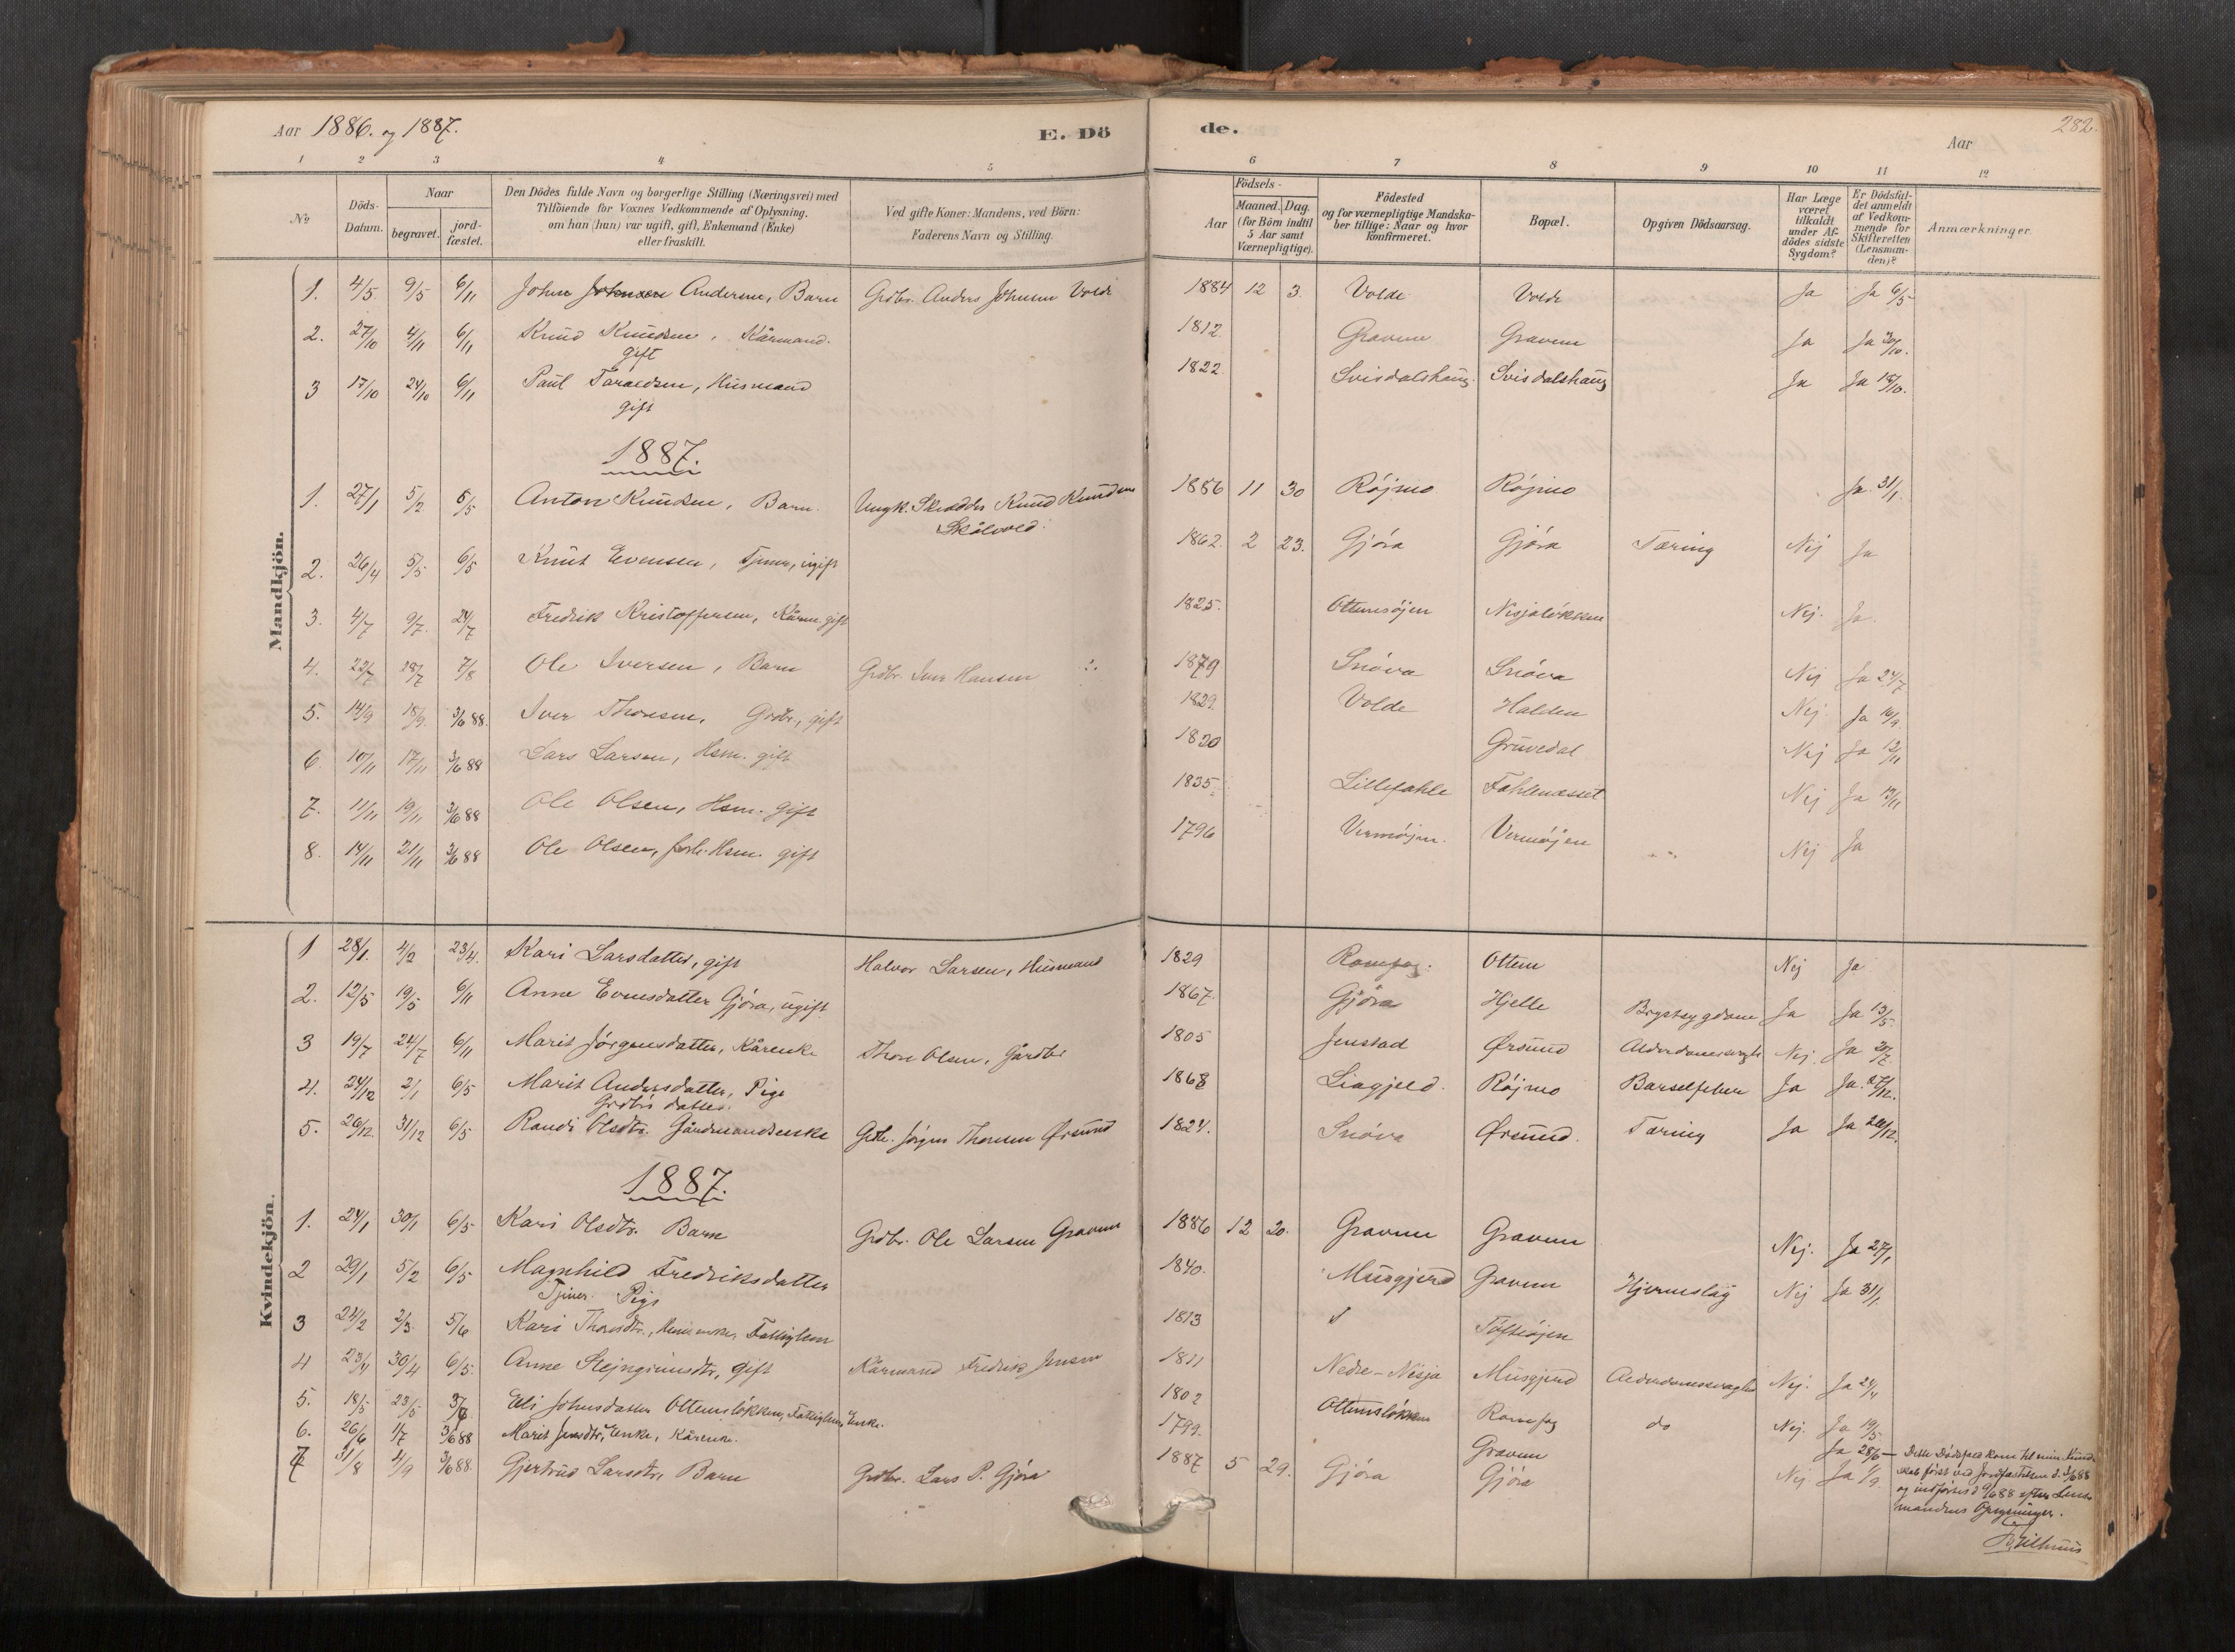 Aar 1886. og 1887.
E. Dö
de.
Aar
282.
1 2 3 4 5 6 7 8 9 10 11 12
No
Döds-Datum.
Naar
begravet.
jordfæstet.
Den Dödes fulde Navn og borgerlige Stilling (Næringsvei) med
Tilföiende for Voxnes Vedkommende af Oplysning,
om han (hun) var ugift, gift, Enkemand (Enke)
eller fraskilt.
Ved gifte Koner: Mandens, ved Börn:
Faderens Navn og Stilling.
Födsels-
Aar
Maaned. Dag.
(for Börn indtil
5 Aar samt
Værnepligtige).
Födested
og for værnepligtige Mandska-
ber tillige: Naar og hvor
konfirmeret.
Bopæl.
Opgiven Dödsaarsag.
Har Læge
været
tilkaldt
under Af-
dödes sidste
Sygdom?
Er Dödsfal-
det anmeldt
af Vedkom-
mende for
Skifteretten
(Lensman-
den)?
Anmærkninger.
Mandkjön.
1. 4/5 9/5 6/11 John Johnsen Andersen, Barn Grdbr. Anders Johnsen Volde 1884 12 3. Volde Volde Ja Ja 6/5
2. 27/10 4/11 6/11 Knud Knudsen, Kårmand. 1812. Gravem Gravem Ja Ja 30/10.
gift
3 17/10 24/10 6/11 Paul Taraldsen, Husmand 1822 Svisdalshaug. Svisdalshaug Ja Ja 18/10.
gift
1887.
1. 27/1 5/2 6/5 Anton Knudsen, Barn. Ungk. Skrædder Knud Knudsen 1886 11 30 Röjmo Röjmo Ja 31/1.
Skålvold.
2. 26/4 5/5 6/5 Knut Evensen, Tjener, ugift 1862. 2 23. Gjöra Gjöra Tæring Nej Ja
3. 4/7 9/7. 24/7 Fredrik Kristoffersen, Kårm. gift 1825. Ottemsöjen Nisjalökken Nej. Ja.
4. 22/7 28/7 7/8 Ole Iversen, Barn Grdbr. Iver Hansen 1879 Snöva Snöva Nej Ja 24/7
5. 14/9 18/9. 3/6 88. Iver Thoresen, Grdbr., gift 1829. Volde Halden Nej. Ja 16/9
6. 10/11 17/11 3/6 88 Lars Larsen, Hsm. gift 1820 Gruvedal Nej Ja 12/11
7. 11/11 19/11 3/6 88 Ole Olsen, Hsm. gift 1835. Lillefahle Fahlenæsset Nej Ja 13/11
8. 14/11 21/11 3/6 88 Ole Olsen, forh. Hsm. gift 1796 Vermöjen. Vermöjen Nej Ja
Kvindekjön.
1 28/1. 4/2 23/4. Kari Larsdatter, gift Halvor Larsen, Husmand 1829 Romfog. Ottem Nej Ja
2. 12/5 19/5 6/11 Anne Evensdatter Gjöra, ugift. 1867. Gjöra Hjelle Brystsygdom Ja Ja 13/5.
3 19/7 24/7 6/11 Marit Jörgensdatter, Kårenke Thore Olsen, Gårdbr 1805 Jenstad Örsund Alderdomssvaghed Nej. Ja 20/7.
4. 24/12 2/1 6/5 Marit Andersdatter, Pige 1868 Liagjeld. Röjmo Barselfeber Ja Ja. 27/12.
Grdbrs datter.
5. 26/12. 31/12 6/5 Randi Olsdtr. Gårdmandsenke Grdbr. Jörgen Thoresen Örsund 1824. Snöva Örsund. Tæring Ja Ja 28/12.
1887.
1. 24/1 30/1 6/5 Kari Olsdtr. Barn Grdbr. Ole Larsen Gravem 1886 12 20. Gravem Gravem Nej. Ja 27/1
2 29/1 5/2 6/5 Magnhild Fredriksdatter 1840. Musgjerd Gravem Hjerneslag Nej Ja 31/1.
Tjener. Pige
3 24/2 2/3. 5/6 Kari Thoresdtr., Fattiglem 1813 Töftöjen
4 23/4 30/4 6/5. Anne Stejngrimsdtr, gift Kårmand Fredrik Jensen 1811 Nedre-Nisja Musgjerd Alderdomssvaghed Nej. Ja 24/4
5. 18/5 23/5 3/7. Eli Johnsdatter Ottemslökken, Fattiglem, Enke. 1802 Ottemslökken Romfog do Nej. Ja 19/5.
6. 26/6 1/7 3/6 88 Marit Jensdtr, Enke, Kårenke. 1799. Gravem Ja 28/6 —
7 31/8 4/9 3/6 88. Gjertrud Larsdtr, Barn Grdbr. Lars P. Gjöra 1887 5 29. Gjöra Gjöra Nej Ja 1/9.
Dette Dödsfald kom til min Kund-
skab först ved Jordfæstelsen d. 3/6 88
og indföres d 9/6 88 efter Lens-
mandens Opgivninger.